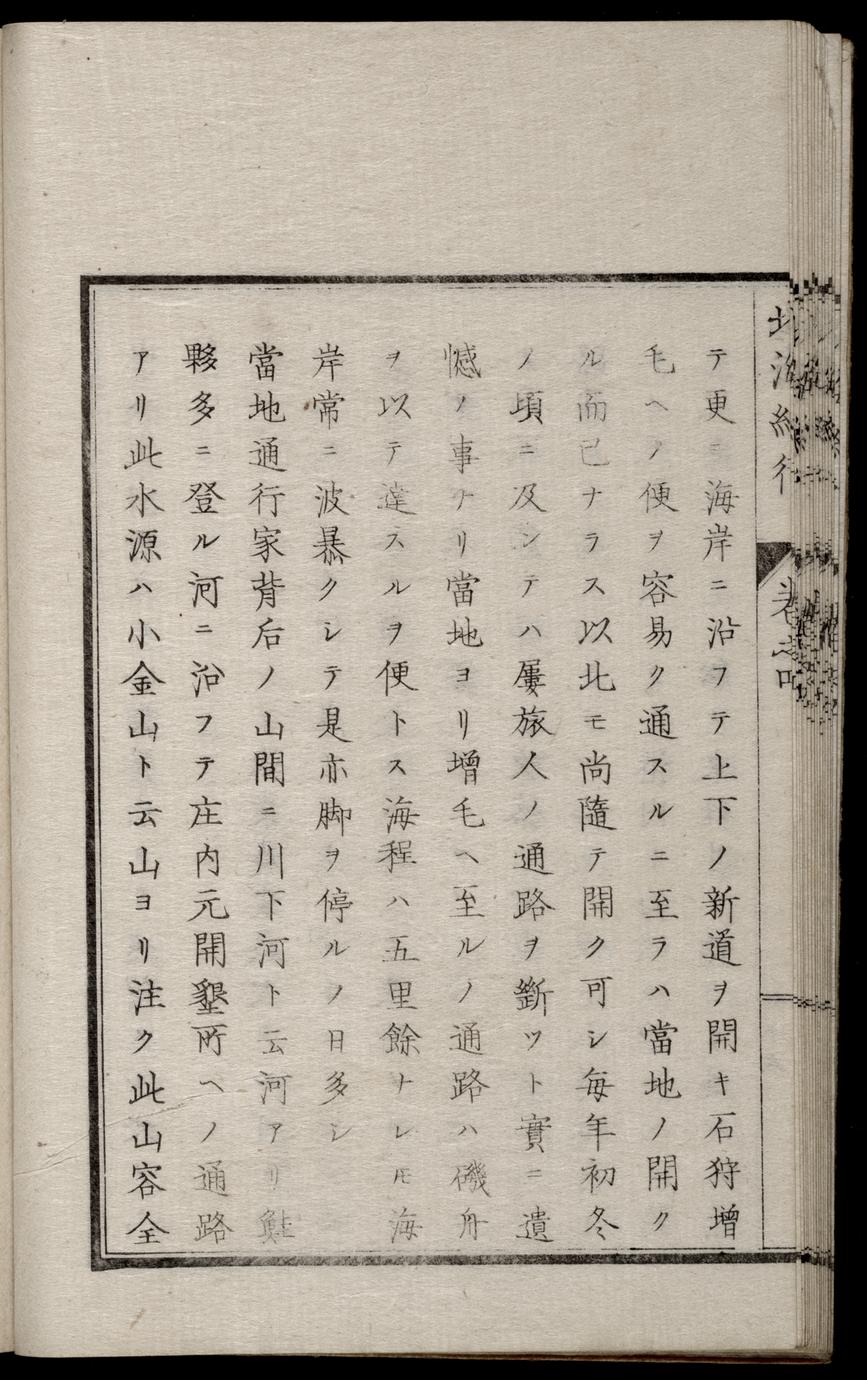 北海紀行 卷之四
テ更ニ海岸ニ沿フテ上下ノ新道ヲ開キ石狩增
毛ヘノ便ヲ容易ク通スルニ至ラハ當地ノ開ク
ル而已ナラス以北モ尚隨テ開ク可シ每年初冬
ノ頃ニ及ンテハ屢旅人ノ通路ヲ斷ツト實ニ遺
憾ノ事ナリ當地ヨリ增毛ヘ至ルノ通路ハ磯舟
ヲ以テ達スルヲ便トス海程ハ五里餘ナレ𪜈海
岸常ニ波暴クシテ是亦脚ヲ停ルノ日多シ
當地通行家背后ノ山間ニ川下河ト云河アリ鮭
夥多ニ登ル河ニ沿フテ庄内元開墾所ヘノ通路
アリ此水源ハ小金山ト云山ヨリ注ク此山容全